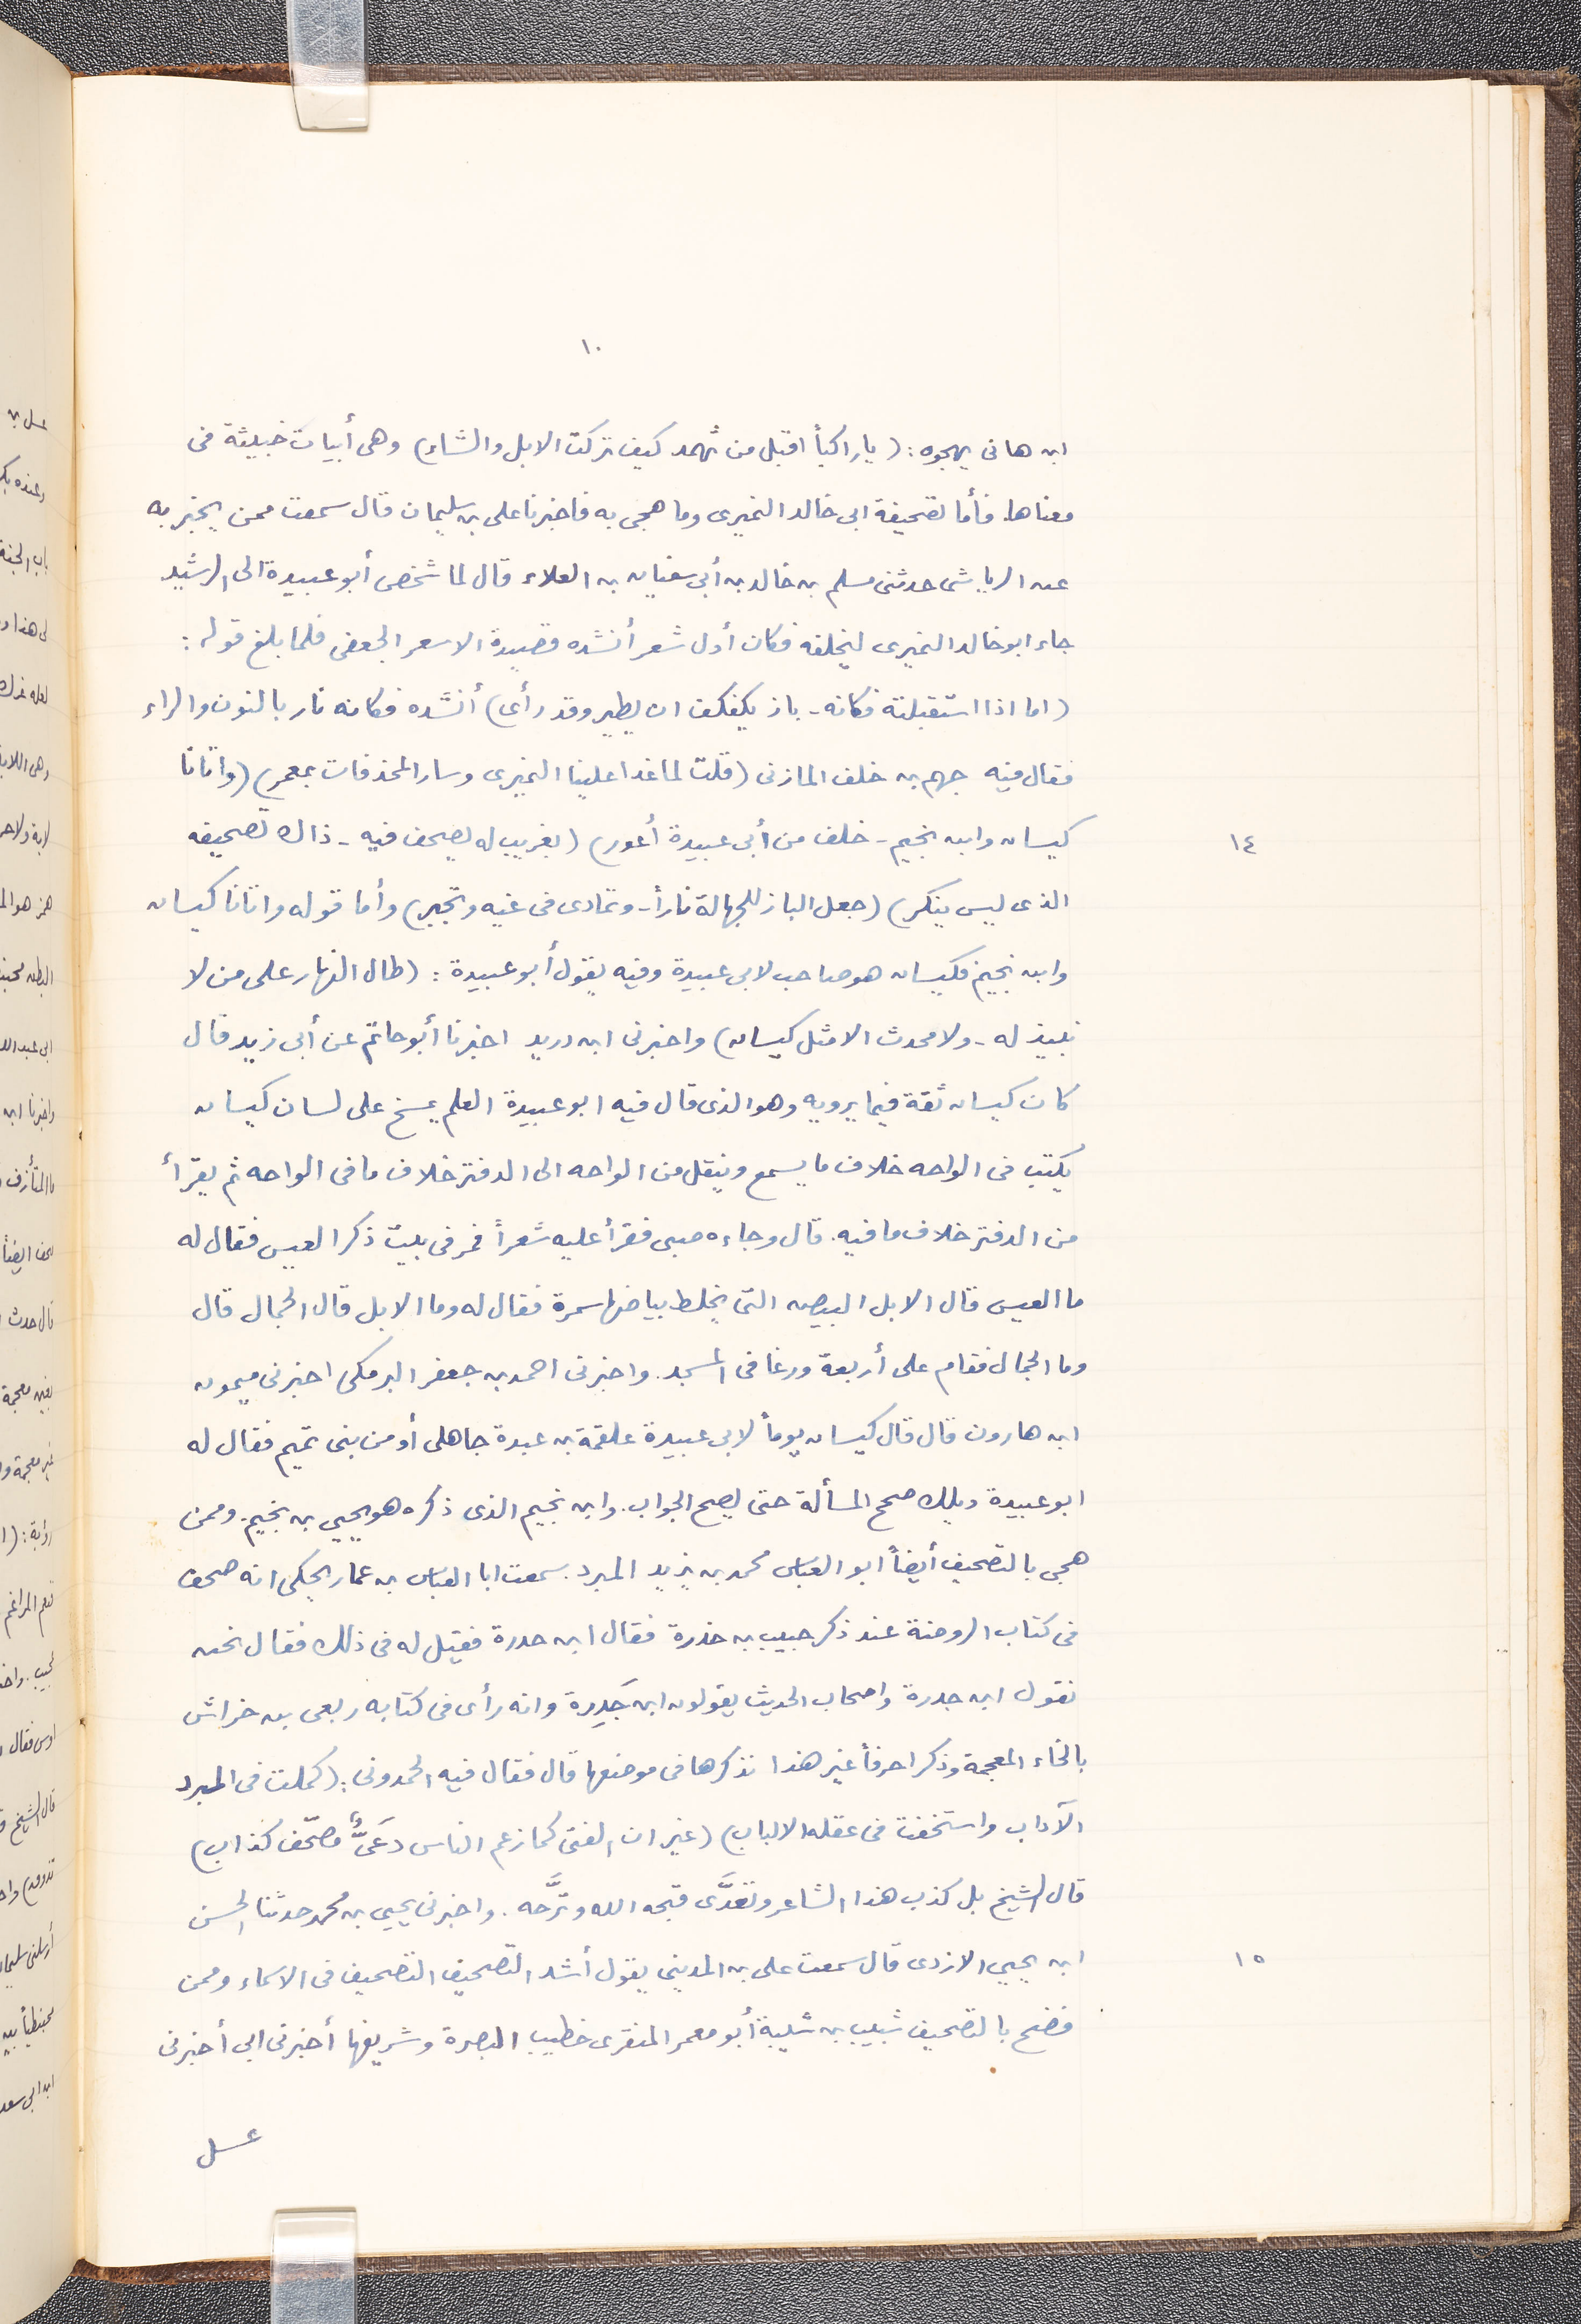 ١٠
ابن هانى يهجوه: (يا راكباً اقبل من ثهمد كيف تركت الابل والشاء) وهى أبيات خبيثة فى
معناها. فأما تصحيفة ابى خالد النميرى وما هجى به فاخبرنا على بن سليمان قال سمعت ممن يخبر به
عن الرياشى حدثنى مسلم بن خالد بن أبى سفيان بن العلاء قال لما شخص أبو عبيدة الى الرشيد
جاء ابو خالد النميرى ليخلفه فكان أول شعر أنشده قصيدة الاسعر الجعفى فلما بلغ قوله:
(اما اذا استقبلته فكانه - باز يكفكف ان يطير وقد رأى) أنشده فكانه نار بالنون والراء
فقال فيه جهم بن خلف المازنى (قلت لما غدا علينا النميرى وسار المحذفات بمعمر) (واتانا
كيسان وابن نجيم - خلف من أبى عبيدة أعور) (بغريب له يصحف فيه - ذاك تصحيفه
١٤
الذى ليس ينكر) (جعل الباز للجهالة ناراً - وتمادى فى غيه وتجبر) وأما قوله واتانا كيسان
وابن نجيم فكيسان هو صاحب لابى عبيدة وفيه يقول أبو عبيدة: (طال النهار على من لا
نبيذ له - ولا محدث الا مثل كيسان) واخبرنى ابن دريد اخبرنا أبو حاتم عن أبى زيد قال
كان كيسان ثقة فيما يرويه وهو الذى قال فيه ابو عبيدة العلم يمسخ على لسان كيسان
يكتب فى الواحه خلاف ما يسمع وينقل من الواحه الى الدفتر خلاف ما فى الواحه ثم يقرأ
من الدفتر خلاف ما فيه. قال وجاءه صبى فقرأ عليه شعراً فمر فى بيت ذكر العيس فقال له
ما العيس قال الابل البيض التى يخلط بياضها سمرة فقال له وما الابل قال الجمال قال
وما الجمال فقام على أربعة ورغا فى المسجد. واخبرنى احمد بن جعفر البرمكى اخبرنى ميمون
ابن هارون قال قال كيسان يوماً لابى عبيدة علقمة بن عبدة جاهلى أو من بنى تميم فقال له
ابو عبيدة ويلك صحح المسألة حتى يصح الجواب. وابن نجيم الذى ذكره هو يحيى بن نجيم. وممن
هجى بالتصحيف أيضاً ابو العباس محمد بن يزيد المبرد. سمعت ابا العباس بن عمار يحكى انه صحف
فى كتاب الروضة عند ذكر حبيب بن خدرة فقال ابن حدرة فقيل له فى ذلك فقال نحن
نقول ابن جدرة واصحاب الحديث يقولون ابن جَدِرة وانه رأى فى كتابه ربعى بن خراش
بالخاء المعجمة وذكر احرفاً غير هذا نذكرها فى موضعها قال فقال فيه الحمدونى: (كملت فى المبرد
الآداب واستخفت فى عقله الالباب) (غير ان الفتى كما زعم الناس دَعىٌّ مصحّف كذاب)
قال الشيخ بل كذب هذا الشاعر وتعدَّى قبحه الله وترَّحه. واخبرنى يحيى بن محمد حدثنا الحسن
ابن يحيى الازدى قال سمعت على بن المدينى يقول أشد التصحيف التصحيف فى الاسماء وممن
١٥
فضح بالتصحيف شبيب بن شيبة أبو معمر المنقرى خطيب البصرة وشريفها أخبرنى ابى أخبرنى
عسل